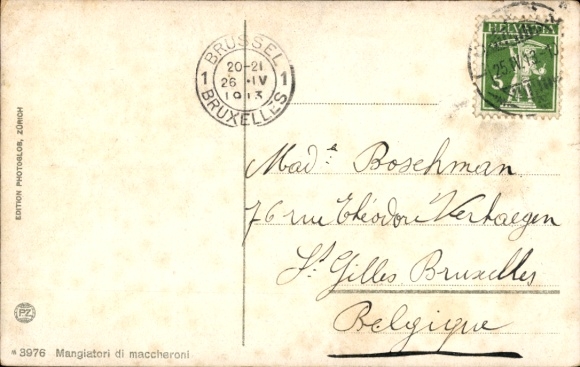 BRUSSEL
1 20-21 1
26 · IV
1913
BRUXELLES
HELVETIA
5
25.IV.13
EDITION PHOTOGLOB, ZÜRICH
Mad.e Boschman
76 rue Théodore Verhaegen
St. Gilles Bruxelles
Belgique
PZ
3976 Mangiatori di maccheroni